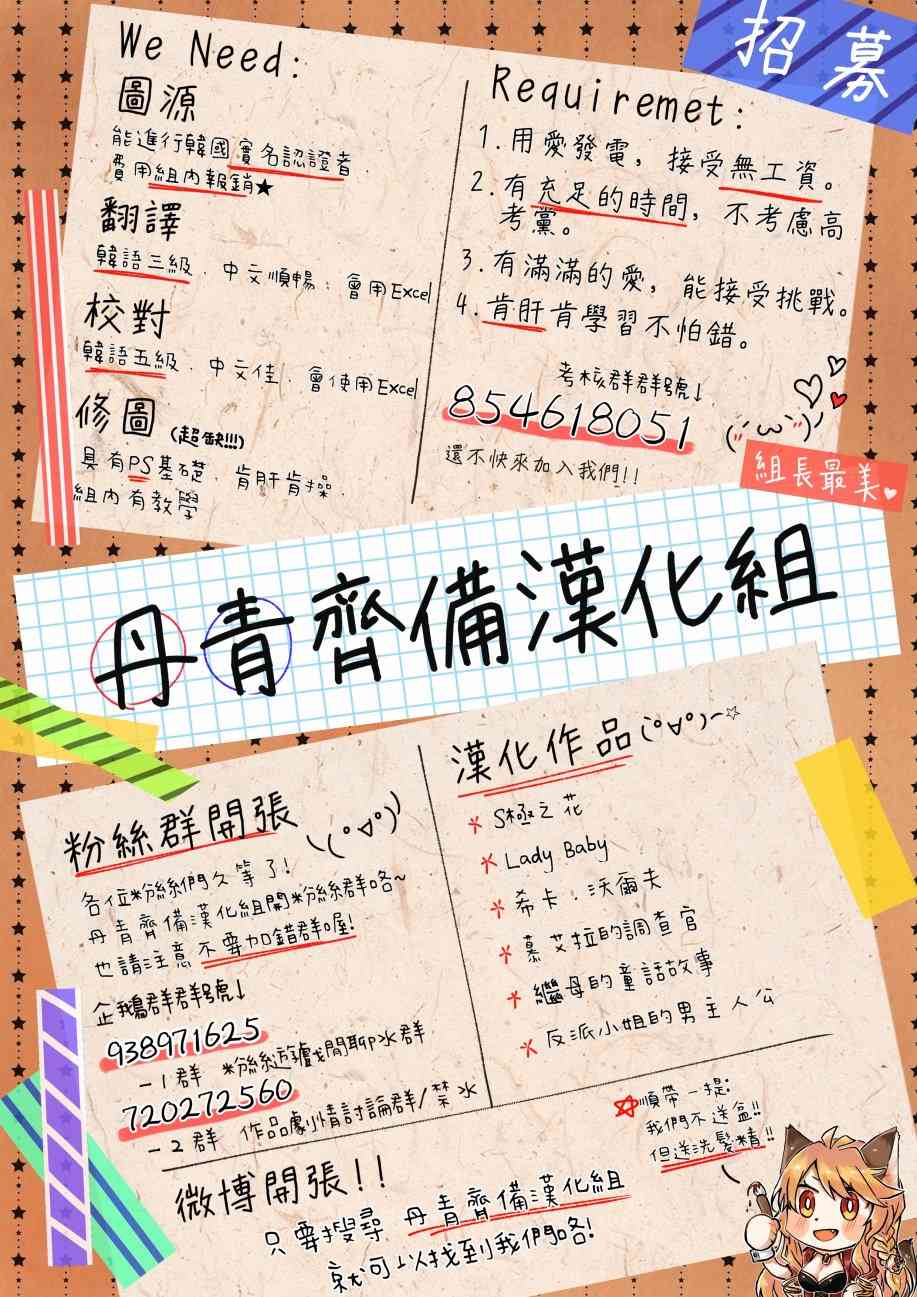 招募
We Need:
圖源
能進行韓國實名認證者.
費用組內報銷★
翻譯
韓語三級、中文順暢；會用Excel
校對
韓語五級、中文佳、會使用Excel
修圖 (超缺!!!)
具有PS基礎、肯肝肯操、
組內有教學
Requiremet:
1.用愛發電，接受無工資。
2.有充足的時間，不考慮高
考黨。
3.有滿滿的愛，能接受挑戰。
4.肯肝肯學習不怕錯。
考核群群號↓
854618051
還不快來加入我們!!
組長最美♥
丹青齊備漢化組
粉絲群開張
各位粉絲們久等了!
丹青齊備漢化組開粉絲群咯~
也請注意不要加錯群喔!
企鵝群群號↓
938971625
-1群 粉絲遊戲閒聊水群
720272560
-2群 作品劇情討論群/禁水
漢化作品
*S極之花
*Lady Baby
*希卡·沃爾夫
*慕艾拉的調查官
*繼母的童話故事
*反派小姐的男主人公
☆順帶一提:
我們不送盒!!
但送洗髮精!!
微博開張!!
只要搜尋 丹青齊備漢化組
就可以找到我們咯!